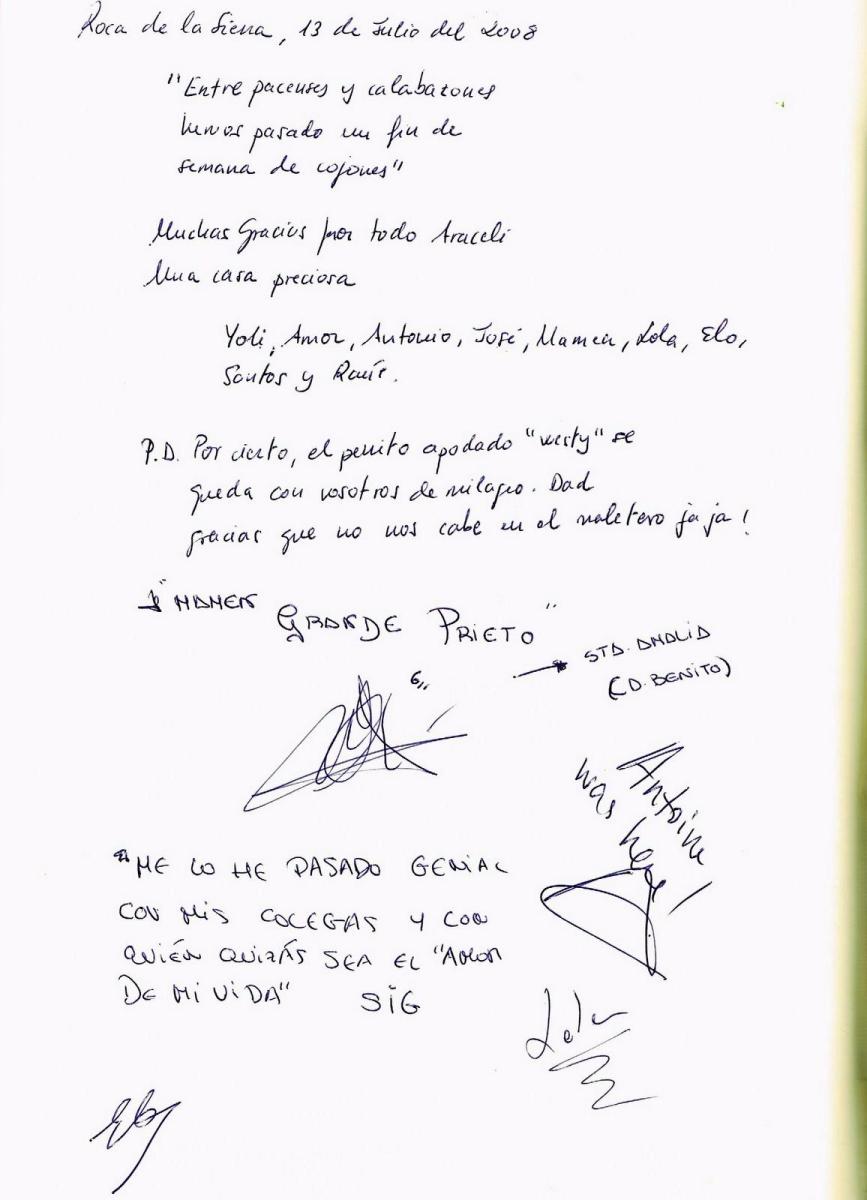 Roca de la Sierra, 13 de Julio del 2008
"Entre pacenses y calabazones
hemos pasado un fin de
semana de cojones"
Muchas Gracias por todo Araceli
Una casa preciosa
Yoli, Amor, Antonio, José, Mamen, Lola, Elo,
Santos y Raúl.
P.D. Por cierto, el perrito apodado "westy" se
queda con vosotros de milagro. Dad
gracias que no nos cabe en el maletero ja ja!
"MAMEN
GRANDE PRIETO"
STA. AMALIA
(D. BENITO)
Antoine
was here!
"ME LO HE PASADO GENIAL
CON MIS COLEGAS Y CON
QUIÉN QUIZÁS SEA EL "AMOR
DE MI VIDA" SIG
Lola
Elo